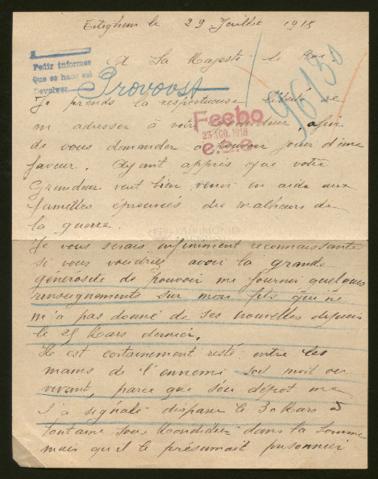 le 29 Juillet 1918
A Sa Majesté le Roi
Pedir informes
Que se hace así
Devolver
Provoost
96150
Je prends la respectueuse liberté de
m'adresser à votre Grandeur, afin
de vous demander
faveur. Ayant appris que votre
Grandeur veut bien venir en aide aux
familles éprouvées des malheurs de
la guerre.
Fecho
23 AGO. 1918
Je vous serais infiniment reconnaissante
si vous voudriez avoir la grande
générosité de pouvoir me fournir quelques
renseignements sur mon fils qui ne
m'a pas donné de ses nouvelles depuis
le 28 Mars dernier.
Il est certainement resté entre les
mains de l'ennemi soit mort ou
vivant, parce que son dépôt me
l'a signalé disparu le 30 Mars à
fontaine sous Mondidier dans la Somme
mais qu'il le présumait prisonnier